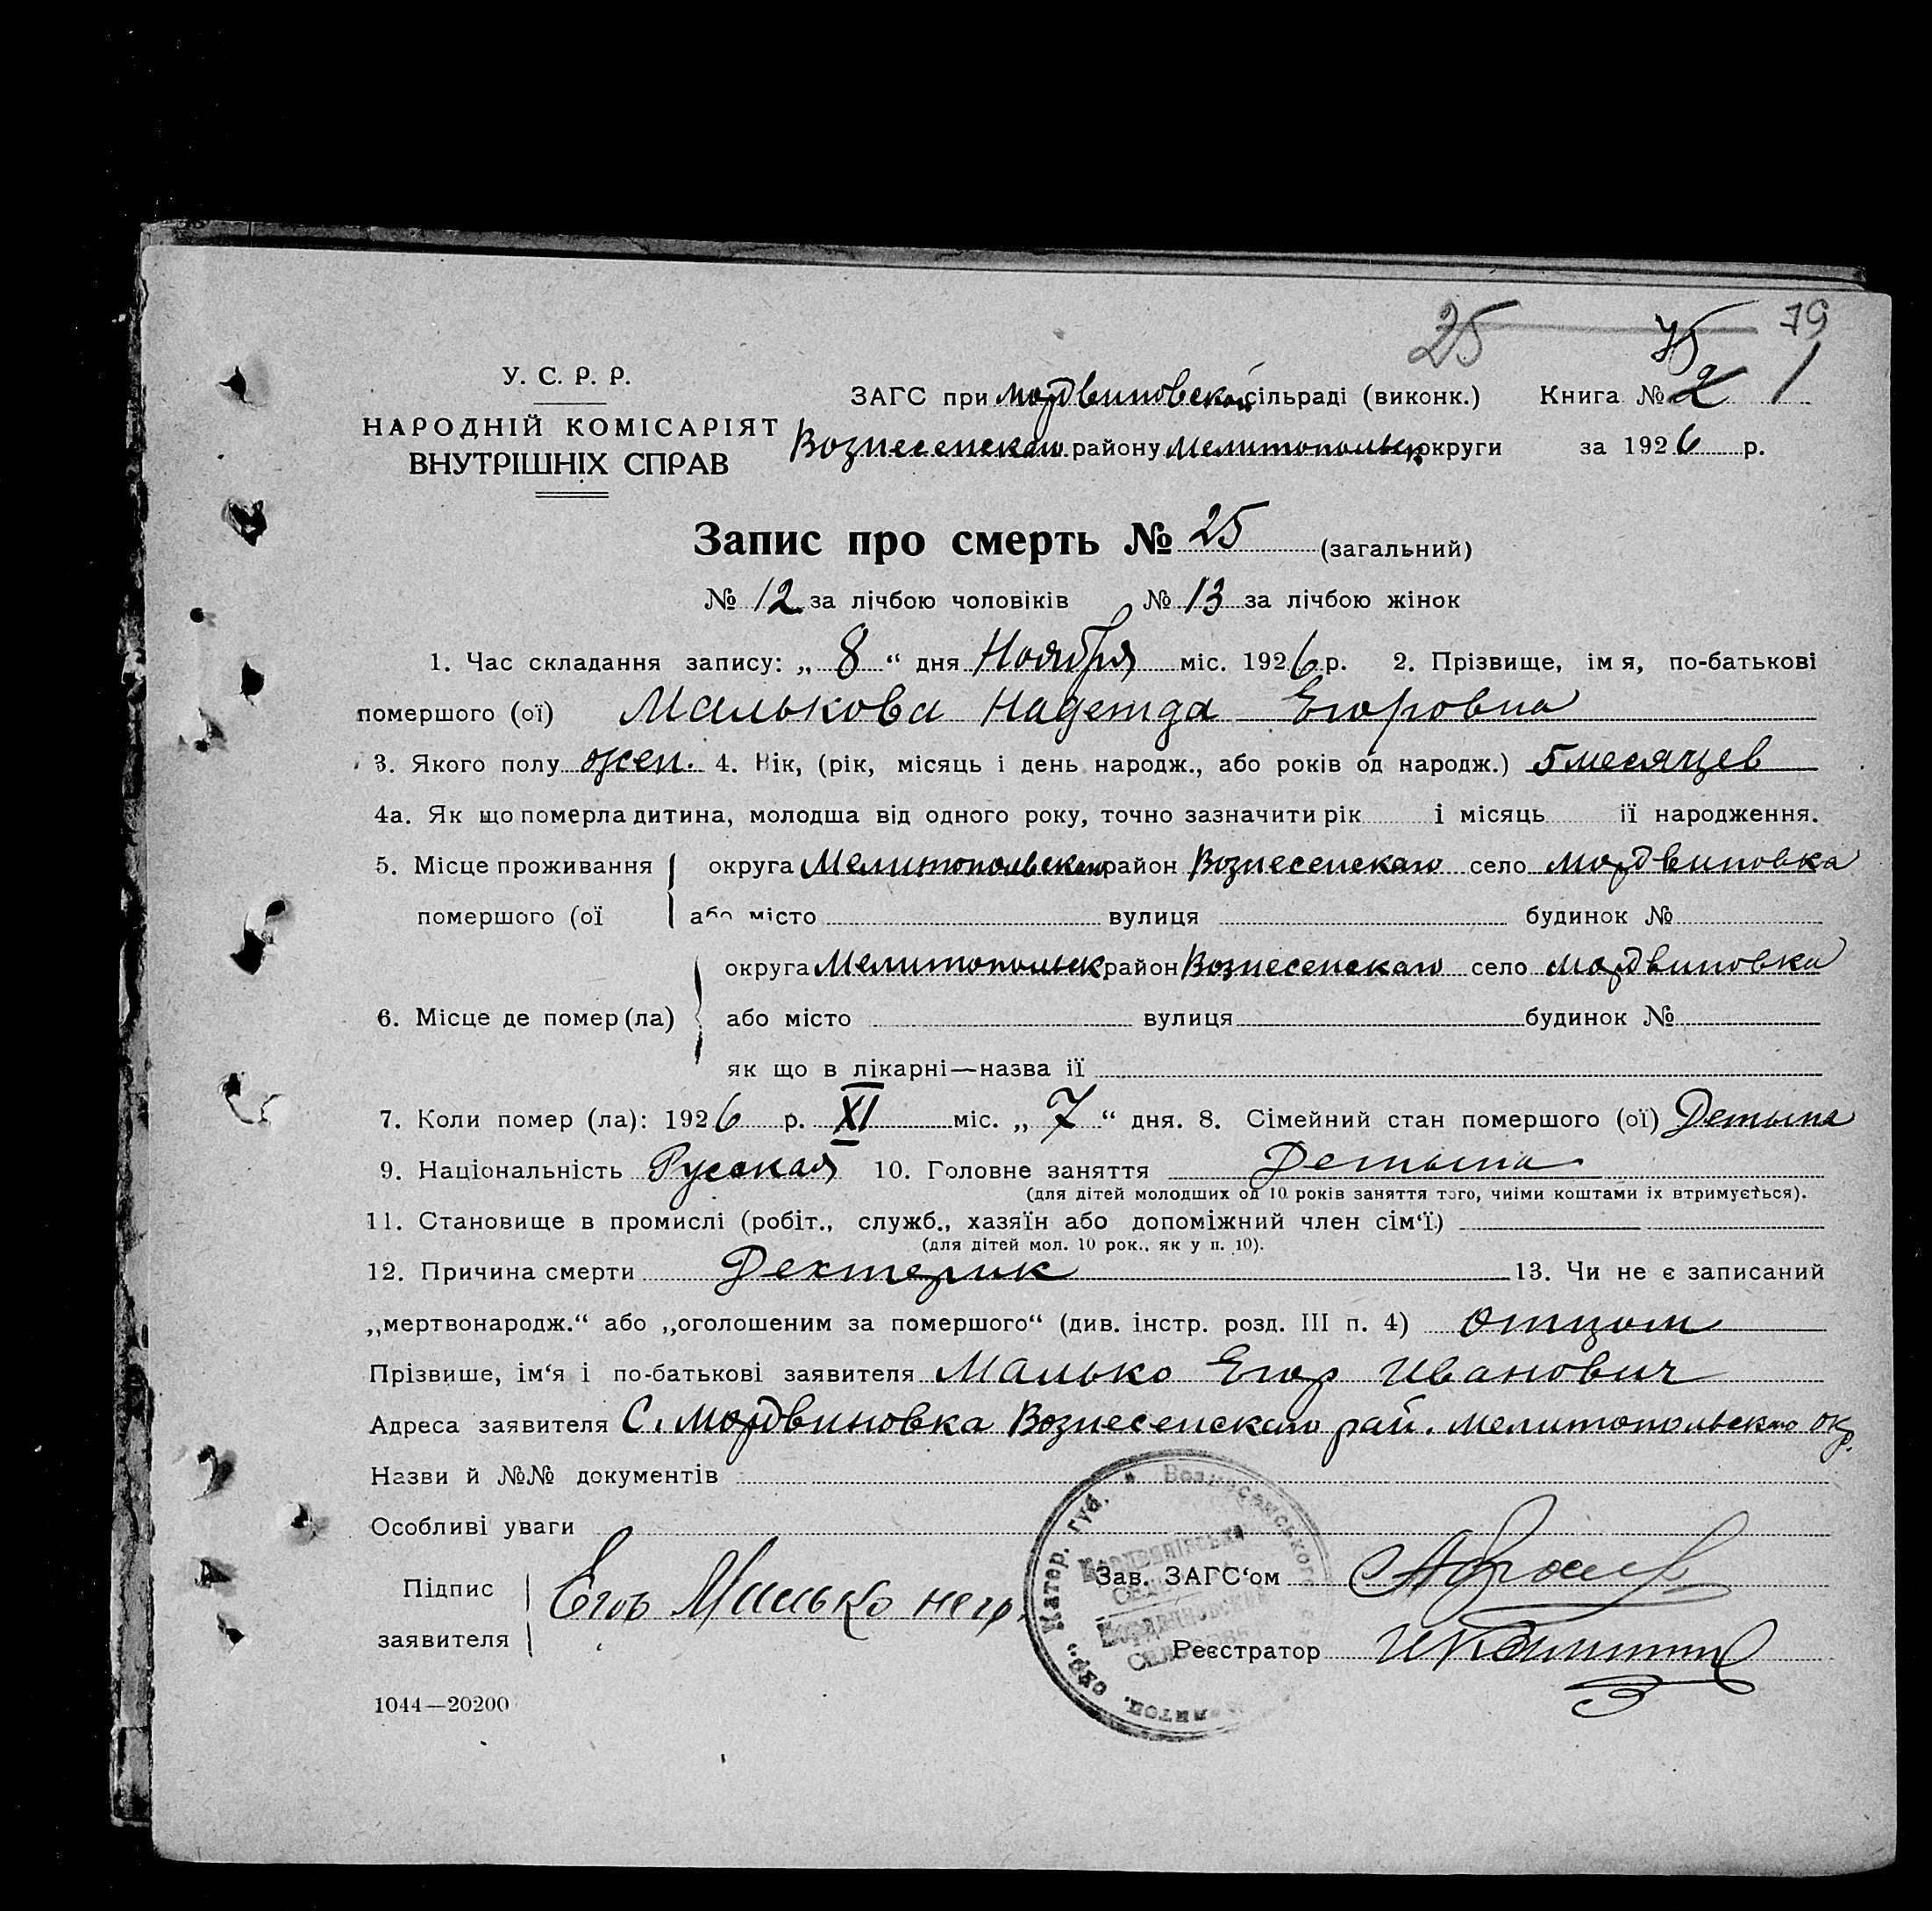 25 75 79
У. С. Р. Р.
НАРОДНІЙ КОМІСАРІЯТ
ВНУТРІШНІХ СПРАВ
ЗАГС при Мордвиновской сільраді (виконк.) Книга № 2 1
Вознесенскаго району Мелитопольск округи за 1926 р.
Запис про смерть № 25 (загальний)
№ 12 за лічбою чоловіків № 13 за лічбою жінок
1. Час складання запису: „ 8 “ дня Ноября міс. 1926 р. 2. Прізвище, імя, по-батькові
помершого (ої) Малькова Надежда Егоровна
3. Якого полу жен. 4. Вік, (рік, місяць і день народж., або років од народж.) 5 месяцев
4а. Як що померла дитина, молодша від одного року, точно зазначити рік і місяць її народження.
5. Місце проживання округа Мелитопольскаго район Вознесенскаго село Мордвиновка
помершого (ої або місто вулиця будинок №
округа Мелитопольск. район Вознесенскаго село Мордвиновка
6. Місце де помер (ла) або місто вулиця будинок №
як що в лікарні—назва її
7. Коли помер (ла): 1926 р. XI міс. „ 7 “ дня. 8. Сімейний стан помершого (ої) Детына
9. Національність Русская 10. Головне заняття Детына
(для дітей молодших од 10 років заняття того, чиїми коштами їх втримується).
11. Становище в промислі (робіт., служб., хазяїн або допоміжний член сім‘ї)
(для дітей мол. 10 рок., як у п. 10).
12. Причина смерти Дехтерик 13. Чи не є записаний
„мертвонародж.“ або „оголошеним за помершого“ (див. інстр. розд. III п. 4) отцом
Прізвише, ім‘я і по-батькові заявителя Малько Егор Иванович
Адреса заявителя С. Мордвиновка Вознесенскаго рай. Мелитопольскаго окр.
Назви й №№ документів
Особливі уваги
Підпис
заявителя
Егов Малько негр.
Зав. ЗАГС‘ом
Реєстратор
Катер. губ. * Вознесенського
Мелитоп. окр.,
1044—20200